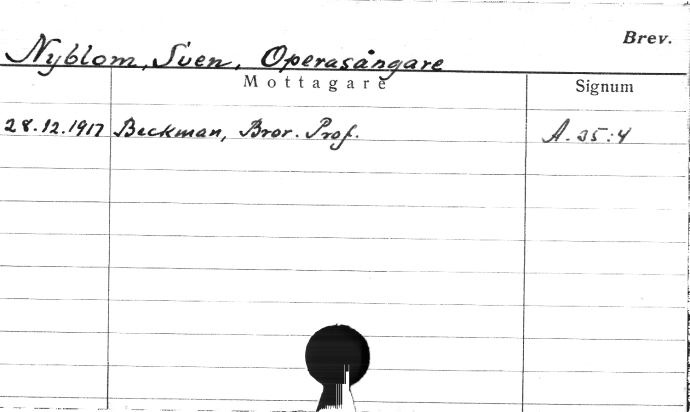 Brev.
Nyblom, Sven, Operasångare
Mottagare Signum
28.12.1917 Beckman, Bror. Prof. A.25:4